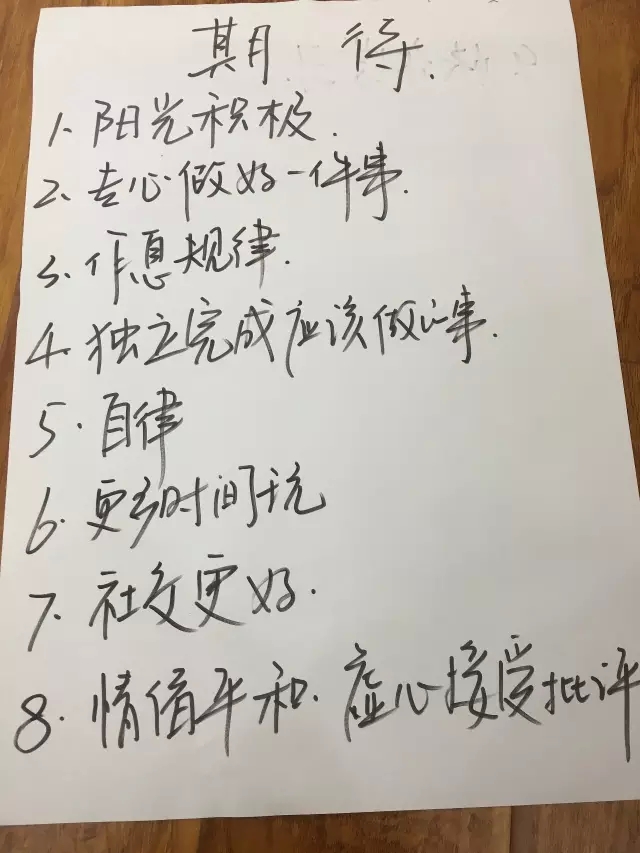 期待.
1. 阳光积极.
2. 专心做好一件事.
3. 作息规律.
4. 独立完成应该做的事.
5. 自律
6. 更多时间玩
7. 社交更好.
8. 情绪平和. 虚心接受批评